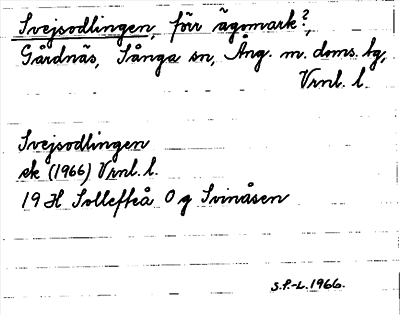 Svejsodlingen, förr ägomark?,
Gårdnäs, Sånga sn, Ång. m. doms. lg,
Vrnl. l.
Svejsodlingen
ek (1966) Vrnl. l.
19 H Sollefteå O g Svinåsen
S.P.-L. 1966.